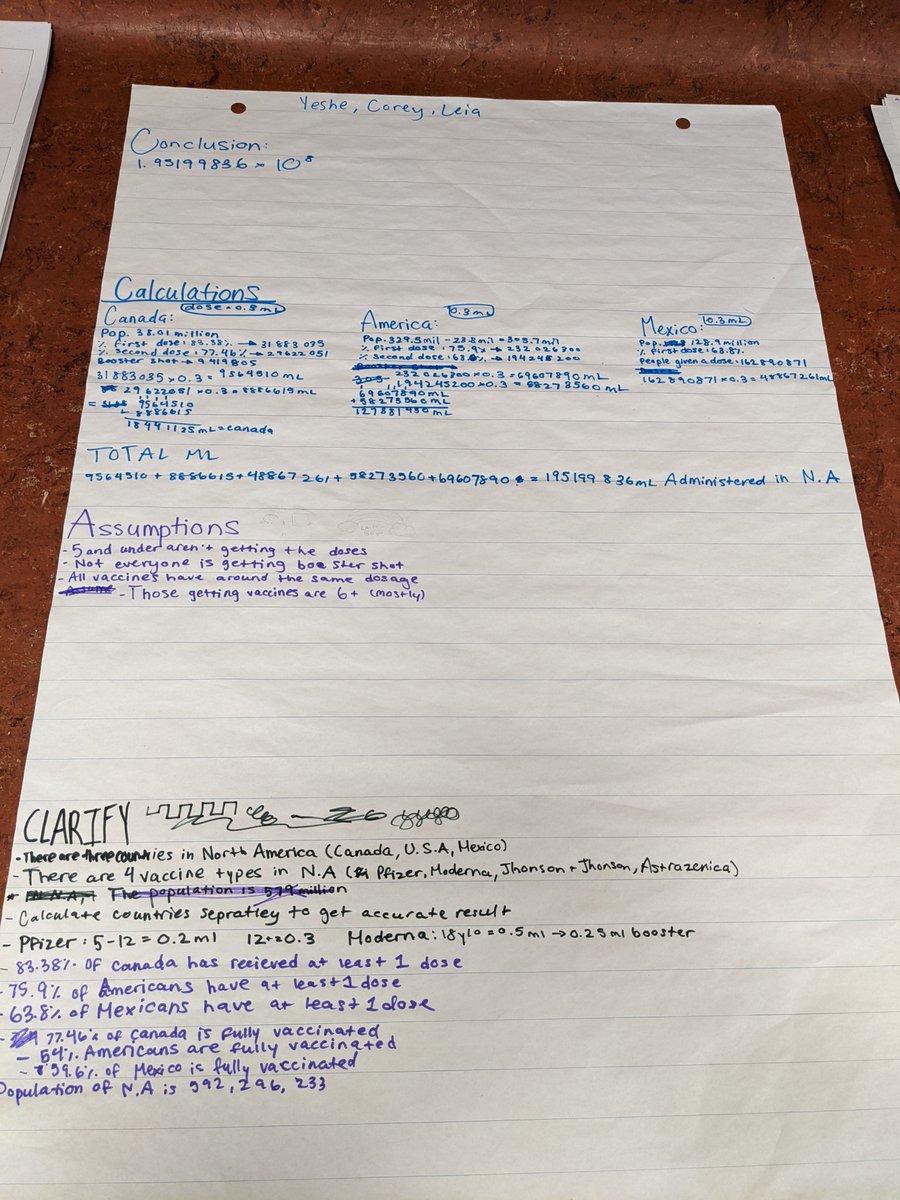 Yeshe, Corey, Leia
Conclusion:
1.95199836 × 10⁸
Calculations
Canada:
dose = 0.3mL
Pop. 38.01 million
% first dose: 83.38% → 31883035
% Second dose: 77.46% → 29622051
Booster shot → 9 919805
31883035 x 0.3 = 9564510 mL
29622051 x 0.3 = 8886615 mL
= 9564510
+ 8886615
18441125mL = canada
America:
0.3mL
Pop. 329.5 mil - 23.8 mil = 305.7 mil
% first dose: 75.9% → 232026300
% Second dose: 63.8% → 194245200
232026300 x 0.3 = 69607890 mL
194245200 x 0.3 = 58273560 mL
69607890 mL
+ 58273560 mL
127881450 mL
Mexico:
0.3mL
Pop. 128.9 million
% first dose: 63.8%
People given a dose: 162890871
162890871 x 0.3 = 48867261mL
TOTAL ML
9564510 + 8886615 + 48867261 + 58273560 + 69607890 = 195199836mL Administered in N.A
Assumptions
- 5 and under aren't getting the doses
- Not everyone is getting booster shot
- All vaccines have around the same dosage
- Those getting vaccines are 6+ (mostly)
CLARIFY
- There are three countries in North America (Canada, U.S.A, Mexico)
- There are 4 vaccine types in N.A (Pfizer, Moderna, Jhonson + Jhonson, Astrazenica)
* In N.A, The population is 579 million
- Calculate countries sepratley to get accurate result
- Pfizer: 5-12 = 0.2ml 12+ = 0.3 Moderna: 18 y/o = 0.5ml → 0.25ml booster
- 83.38% of Canada has recieved at least 1 dose
- 75.9% of Americans have at least 1 dose
- 63.8% of Mexicans have at least 1 dose
- 77.46% of Canada is fully vaccinated
- 64% Americans are fully vaccinated
- 59.6% of Mexico is fully vaccinated
Population of N.A is 592, 296, 233